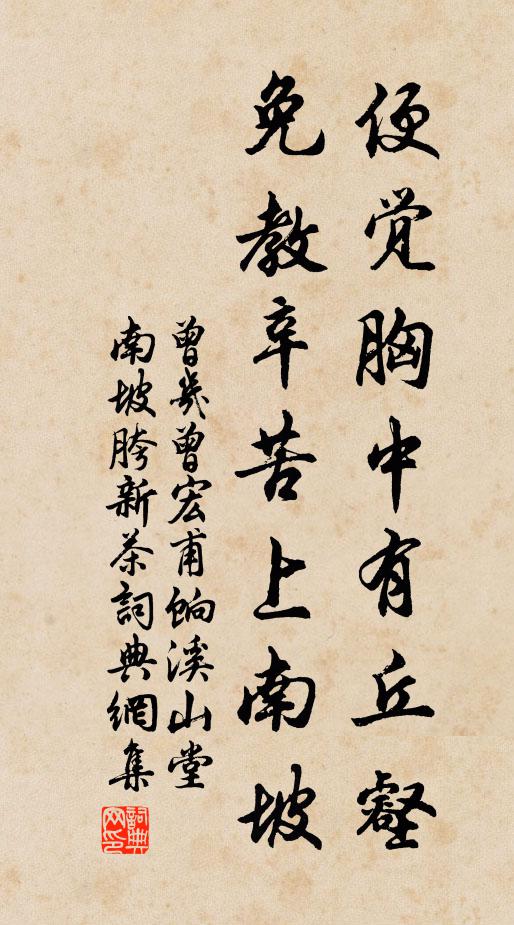 便觉胸中有丘壑
免教辛苦上南坡
曾幾曾宏甫餉溪山堂
南坡胯新茶詞典網集
詞典网印